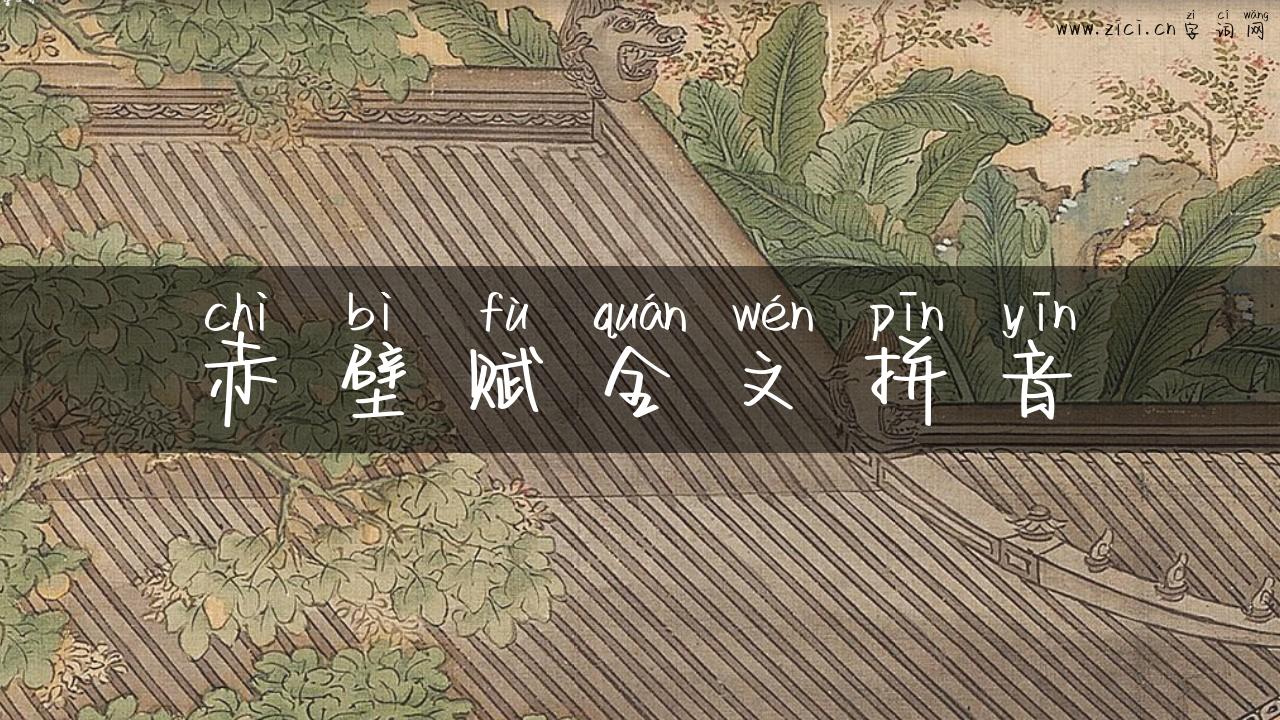 zì cí wǎng
www.zici.cn 字词网
chì bì fù quán wén pīn yīn
赤壁赋全文拼音